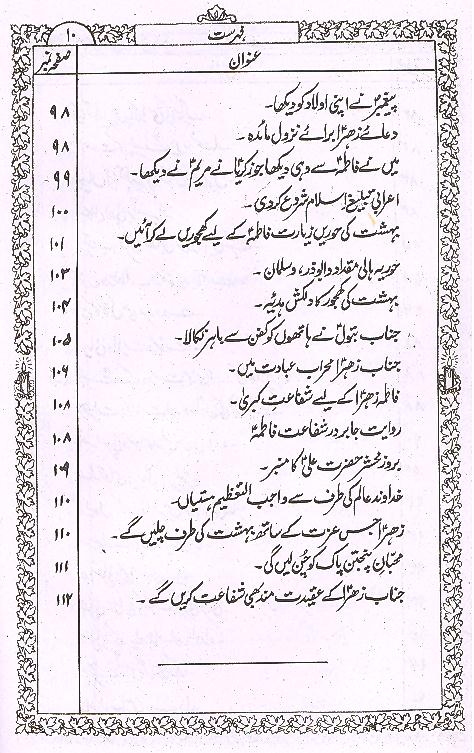 فہرست ۱۰
عنوان صفحہ نمبر
پیغمبرؐ نے اپنی اولاد کو دیکھا۔ ۹۸
دعائے زہراؑ برائے نزول مائدہ۔ ۹۸
میں نے فاطمہؑ سے وہی دیکھا جو زکریاؑ نے مریمؑ نے دیکھا۔ ۹۹
اعرابی تبلیغِ اسلام شروع کردی۔ ۱۰۰
بہشت کی حوریں زیارت فاطمہؑ کے لیے کھجوریں لے کر آئیں۔ ۱۰۱
حوریہ ہائی مقداد و ابوذر، و سلمان۔ ۱۰۳
بہشت کی کھجور کا دلکش ہدیہ۔ ۱۰۴
جناب بتولؑ نے ہاتھوں کو کفن سے باہر نکالا۔ ۱۰۵
جناب زہراؑ محراب عبادت میں۔ ۱۰۶
فاطمہ زہراؑ کے لیے شفاعتِ کبریٰ۔ ۱۰۸
روایت جابر در شفاعت فاطمہؑ ۱۰۸
بروز محشر حضرت علیؑ کا منبر۔ ۱۰۹
خداوند عالم کی طرف سے واجب التعظیم ہستیاں۔ ۱۱۰
زہراؑ جس عزت کے ساتھ بہشت کی طرف چلیں گے۔ ۱۱۰
محبانِ پنجتن پاک کو چُن لیں گی۔ ۱۱۱
جناب زہراؑ کے عقیدت مند بھی شفاعت کریں گے۔ ۱۱۲